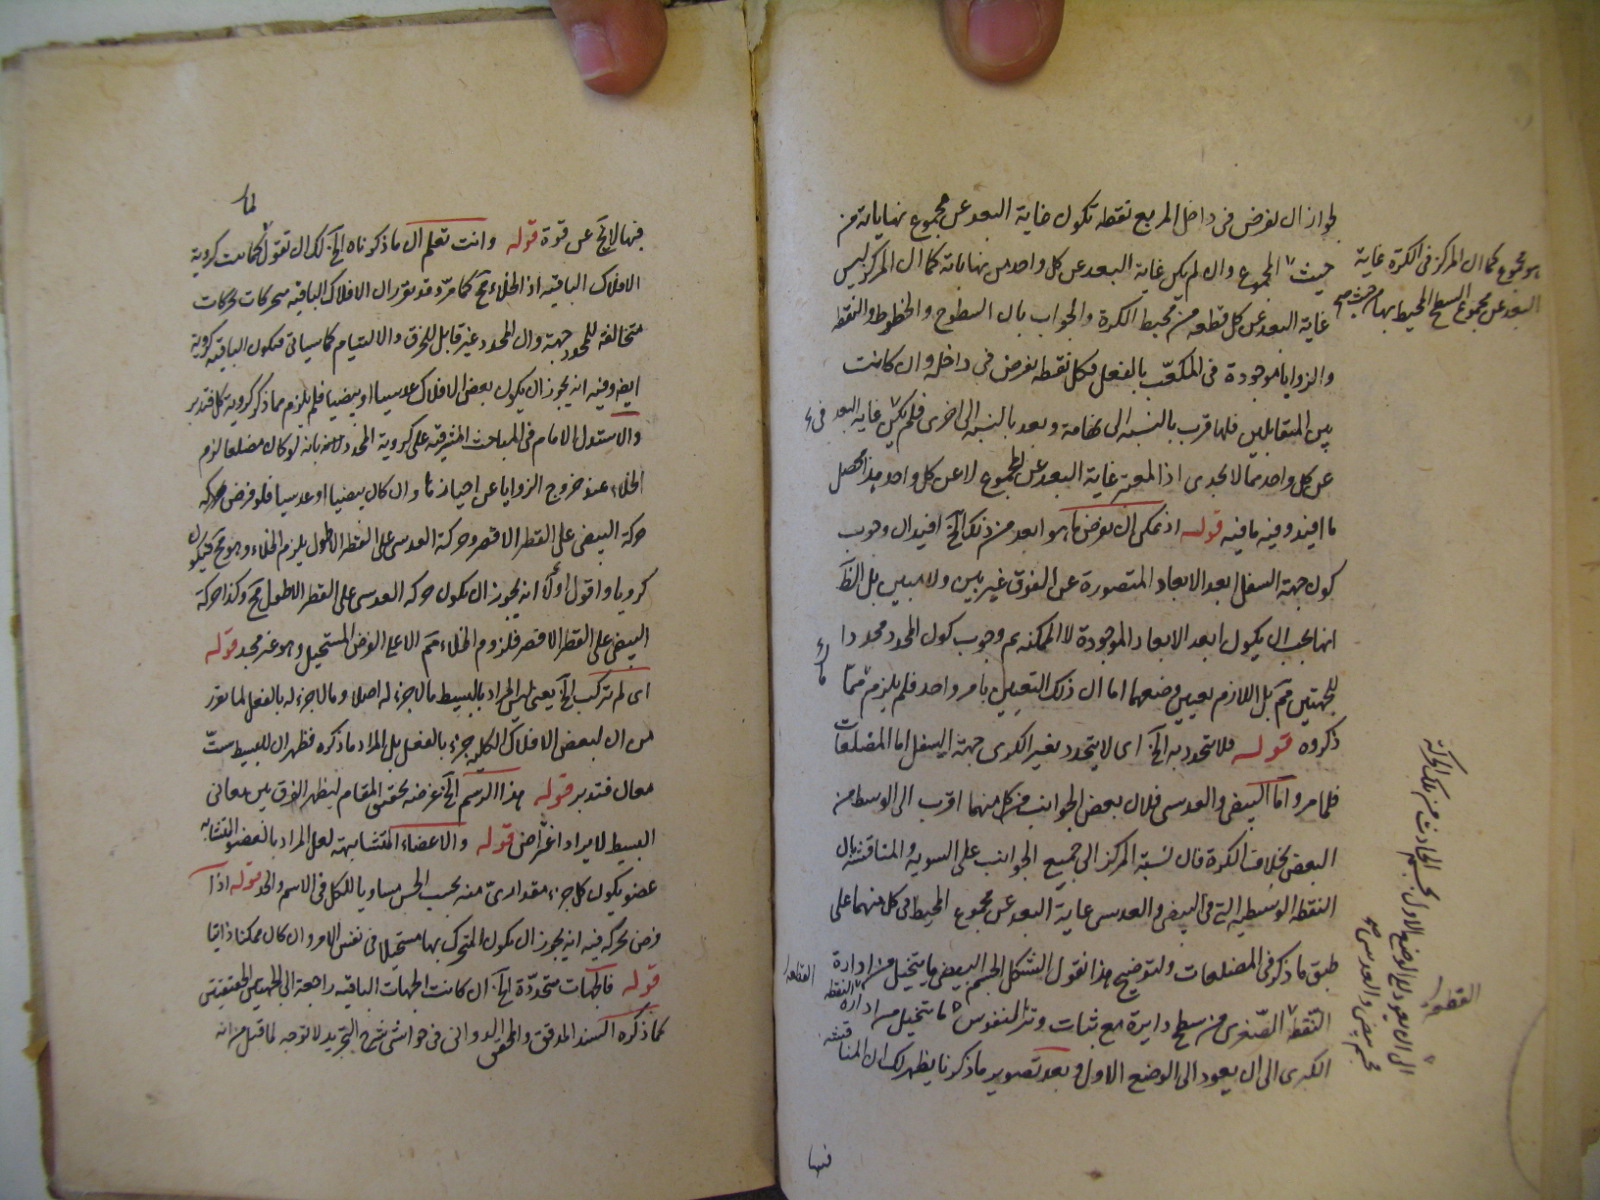 لجواز ان نفرض فى داخل المربع نقطه تكون غاية البعد عن مجموع نهاياته من
حيث المجموع وان لم يكن غاية البعد عن كل واحد من نهاياته كما ان المركز ليس
غاية البعد عن كل قطعه من محيط الكرة والجواب بان السطوح والخطوط والنقطه
والزوايا موجودة فى المكعب بالفعل فكل نقطه نفرض فى داخله وان كانت
بين المتقابلين فلها قرب بالنسبه الى نهاية وبعد بالنسبه الى اخرى فلم يكن غايه البعد
عن كل واحد مما لا يجدى اذ المعتبر غاية البعد عن المجموع لا عن كل واحد هذا محصل
ما افيد وفيه ما فيه قوله اذ يمكن ان نفرض ما هو ابعد من ذلك الخ افيد ان وجوب
كون جهة السفل ابعد الابعاد المتصورة عن الفوق غير بين ولا مبين بل الظ
انها يجب ان يكون ابعد الابعاد الموجودة لا الممكنه ثم وجوب كون المحدد محددا
للجهتين مم بل اللازم تعيين وضعهما اما ان ذلك التعيين بامر واحد فلم يلزم مما
ذكروه قوله فلا تتحدد به الخ اى لا يتحدد بغير الكرى جهة السفل اما المضلعات
فلما مر واما البيضى والعدسى فلان بعض الجوانب من كل منهما اقرب الى الوسط من
البعض بخلاف الكرة فان نسبة المركز الى جميع الجوانب على السويه والمناقشه بان
النقطه الوسطيه التى فى البيضى والعدسى غاية البعد عن مجموع المحيط فى كل منهما على
طبق ما ذكر فى المضلعات ولتوضيح هذا نقول الشكل الجسم البيضى ما يتخيل من ادارة
القطعه الصغرى من سطح دايرة مع ثبات وتر المنقوس ما يتخيل من ادارة
الكبرى الى ان يعود الى الوضع الاول وبعد تصوير ما ذكرنا يظهر لك ان المناقشه
فيها
هو مجموع كما ان المركز فى الكرة غاية
البعد عن مجموع السطح المحيط بها من حيث
الى ان يعود الى الوضع الاول
مجسم بيضى والعدسى
فيها لا يخ عن قوة قوله وانت تعلم ان ما ذكرناه الخ لك ان تقول كما ثبت كروية
الافلاك الباقيه اذ الخلاء مح كما مر وقد تقرر ان الافلاك الباقيه متحركات بحركات
متخالفه للمحدد جهة وان المحدد غير قابل للخرق والالتيام كما سياتى فيكون الباقيه كروية
ايض وفيه انه يجوز ان يكون بعض الافلاك عدسيا او بيضيا فلم يلزم مما ذكر كروية كل فتدبر
واستدل الامام فى المباحث المشرقيه على كروية المحدد بانه لو كان مضلعا لزم
الخلاء عند خروج الزوايا عن احيازها وان كان بيضيا او عدسيا فلو فرض حركه
حركة البيضى على القطر الاقصر وحركة العدسى على القطر الاطول يلزم الخلاء وهو مح فيكون
كرويا واقول اولا انه يجوز ان يكون حركه العدسى على القطر الاطول مح وكذا حركة
البيضى على القطر الاقصر فلزوم الخلاء مم الا على الفرض المستحيل وهو غير مجد قوله
اى لم تتركب الخ يعنى ليس المراد بالبسيط ما لا جزء له اصلا وما لا جزء له بالفعل لما تقرر
من ان لبعض الافلاك الكليه جزء بالفعل بل المراد ما ذكره فظهر ان للبسيط ست
معان فتدبر قوله هذا الرسم الخ غرضه تحقيق المقام ليظهر الفرق بين معانى
البسيط لا يراد اعتراض قوله والاعضاء المتشابهته لعل المراد بالعضو المتشابه
عضو يكون كل جزء مقدارى منه بحسب الحس مساويا للكل فى الاسم والحد قوله اذا
فرض تحركه فيه انه يجوز ان يكون المتحرك بها مستحيلا فى نفس الامر وان كان ممكنا ذاتيا
قوله فالجهات متحددة الخ ان كانت الجهات الباقيه راجعة الى الجهتين الحقيقيتين
كما ذكره السند المدقق والمحقق الدوانى فى حواشى شرح التجريد لا توجه لما قيل من انه